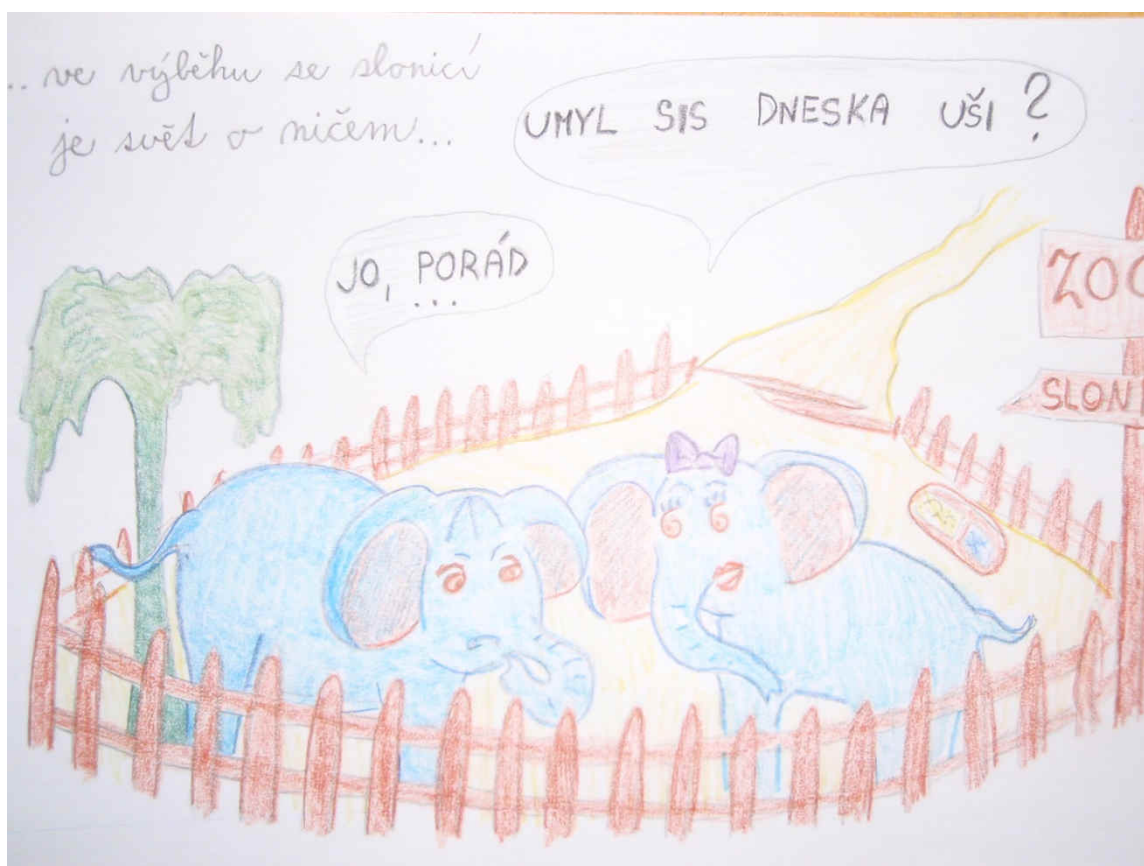 .. ve výběhu se slonicí
je svět o ničem...
UMYL SIS DNESKA UŠI ?
JO, PORÁD
...
ZOO
SLONI